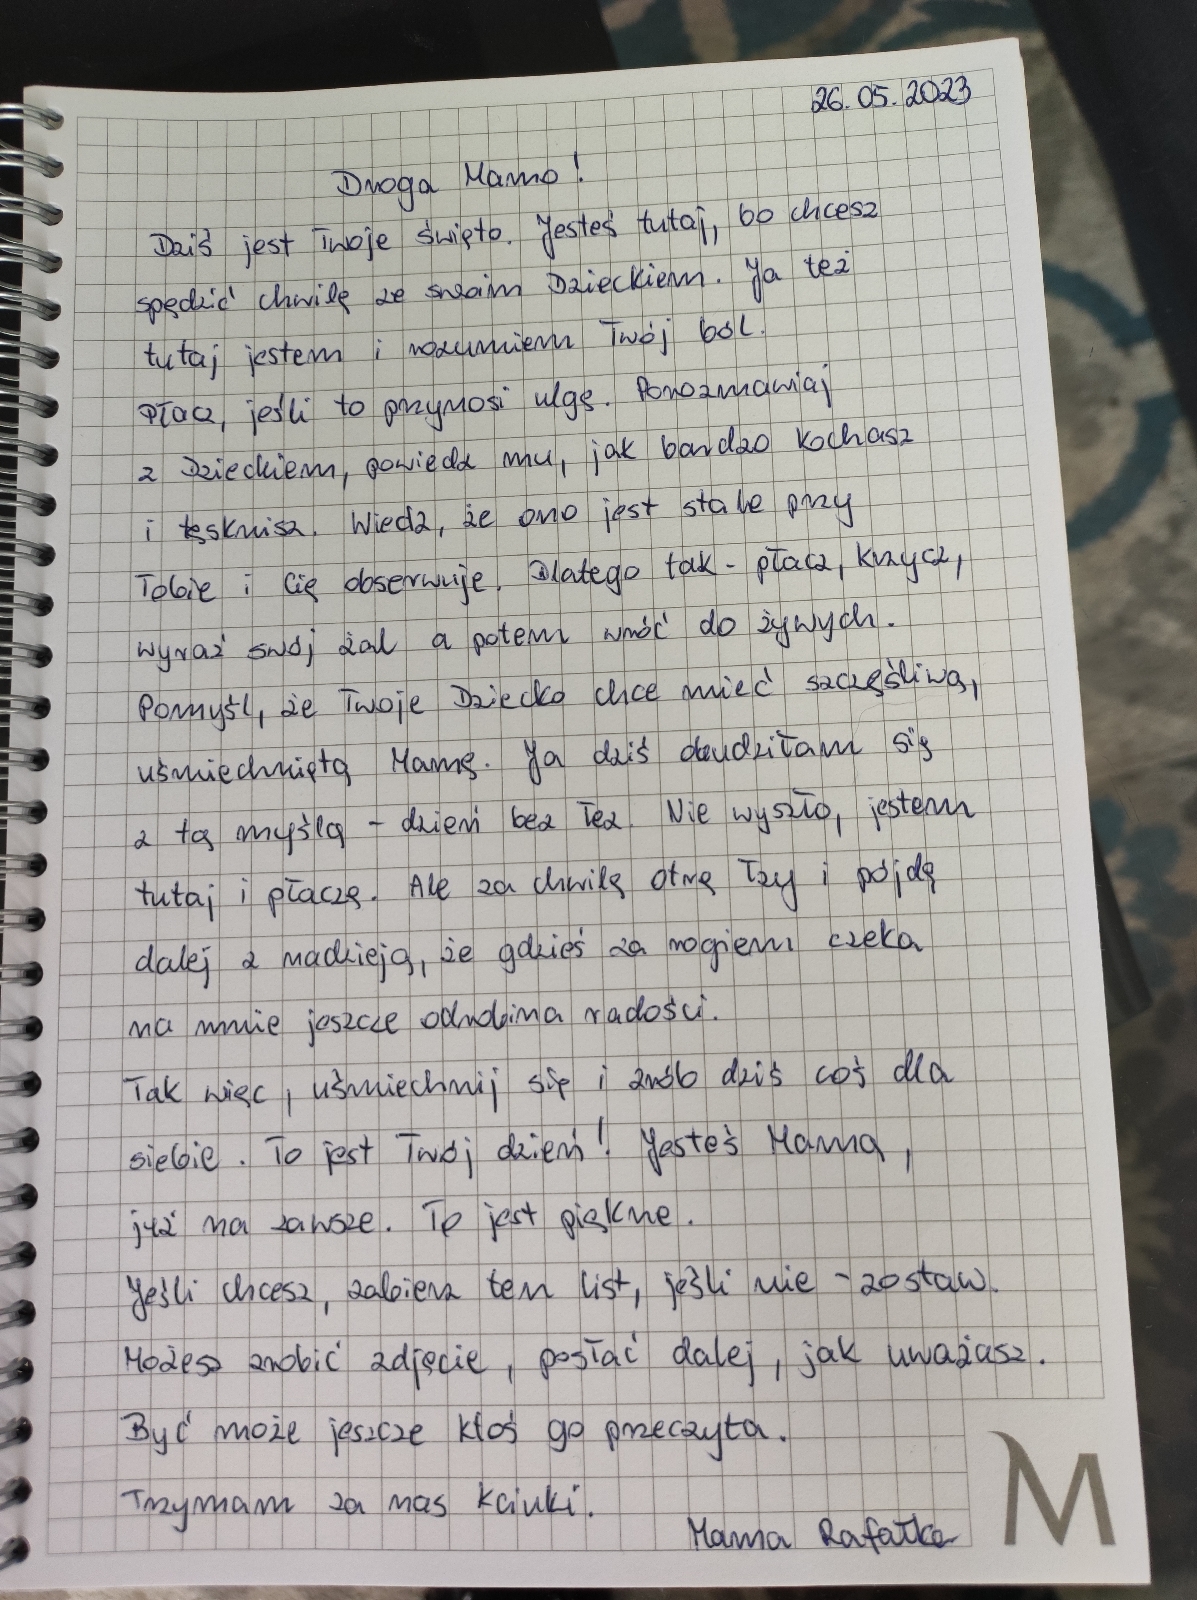 26.05.2023
Droga Mamo!
Dziś jest Twoje święto. Jesteś tutaj, bo chcesz
spędzić chwilę ze swoim Dzieckiem. Ja też
tutaj jestem i rozumiem Twój ból.
Płacz, jeśli to przynosi ulgę. Porozmawiaj
z Dzieckiem, powiedz mu, jak bardzo kochasz
i tęsknisz. Wiedz, że ono jest stale przy
Tobie i Cię obserwuje. Dlatego tak - płacz, krzycz,
wyraź swój żal a potem wróć do żywych.
Pomyśl, że Twoje Dziecko chce mieć szczęśliwą,
uśmiechniętą Mamę. Ja dziś obudziłam się
z tą myślą - dzień bez łez. Nie wyszło, jestem
tutaj i płaczę. Ale za chwilę otrę łzy i pójdę
dalej z nadzieją, że gdzieś za rogiem czeka
na mnie jeszcze odrobina radości.
Tak więc, uśmiechnij się i zrób dziś coś dla
siebie. To jest Twój dzień! Jesteś Mamą,
już na zawsze. To jest piękne.
Jeśli chcesz, zabierz ten list, jeśli nie - zostaw.
Możesz zrobić zdjęcie, posłać dalej, jak uważasz.
Być może jeszcze ktoś go przeczyta.
Trzymam za nas kciuki.
Mama Rafałka
M